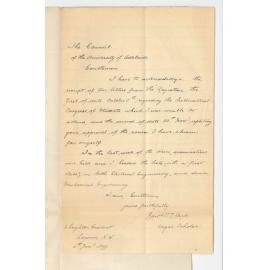 The Council
of the University of Adelaide
Gentlemen
I have to acknowledge the
receipt of two letters from the Registrar, the
first of date October 5th regarding the International
Congress of Students which I was unable to
attend, and the second of date 22nd Nov. expressing
your approval of the course I have chosen
for myself.
In the last week of the term examinations
were held and I headed the lists with a first
class, in both Electrical Engineering, and
Mechanical Engineering.
I am Gentlemen
yours faithfully
Angas Scholar